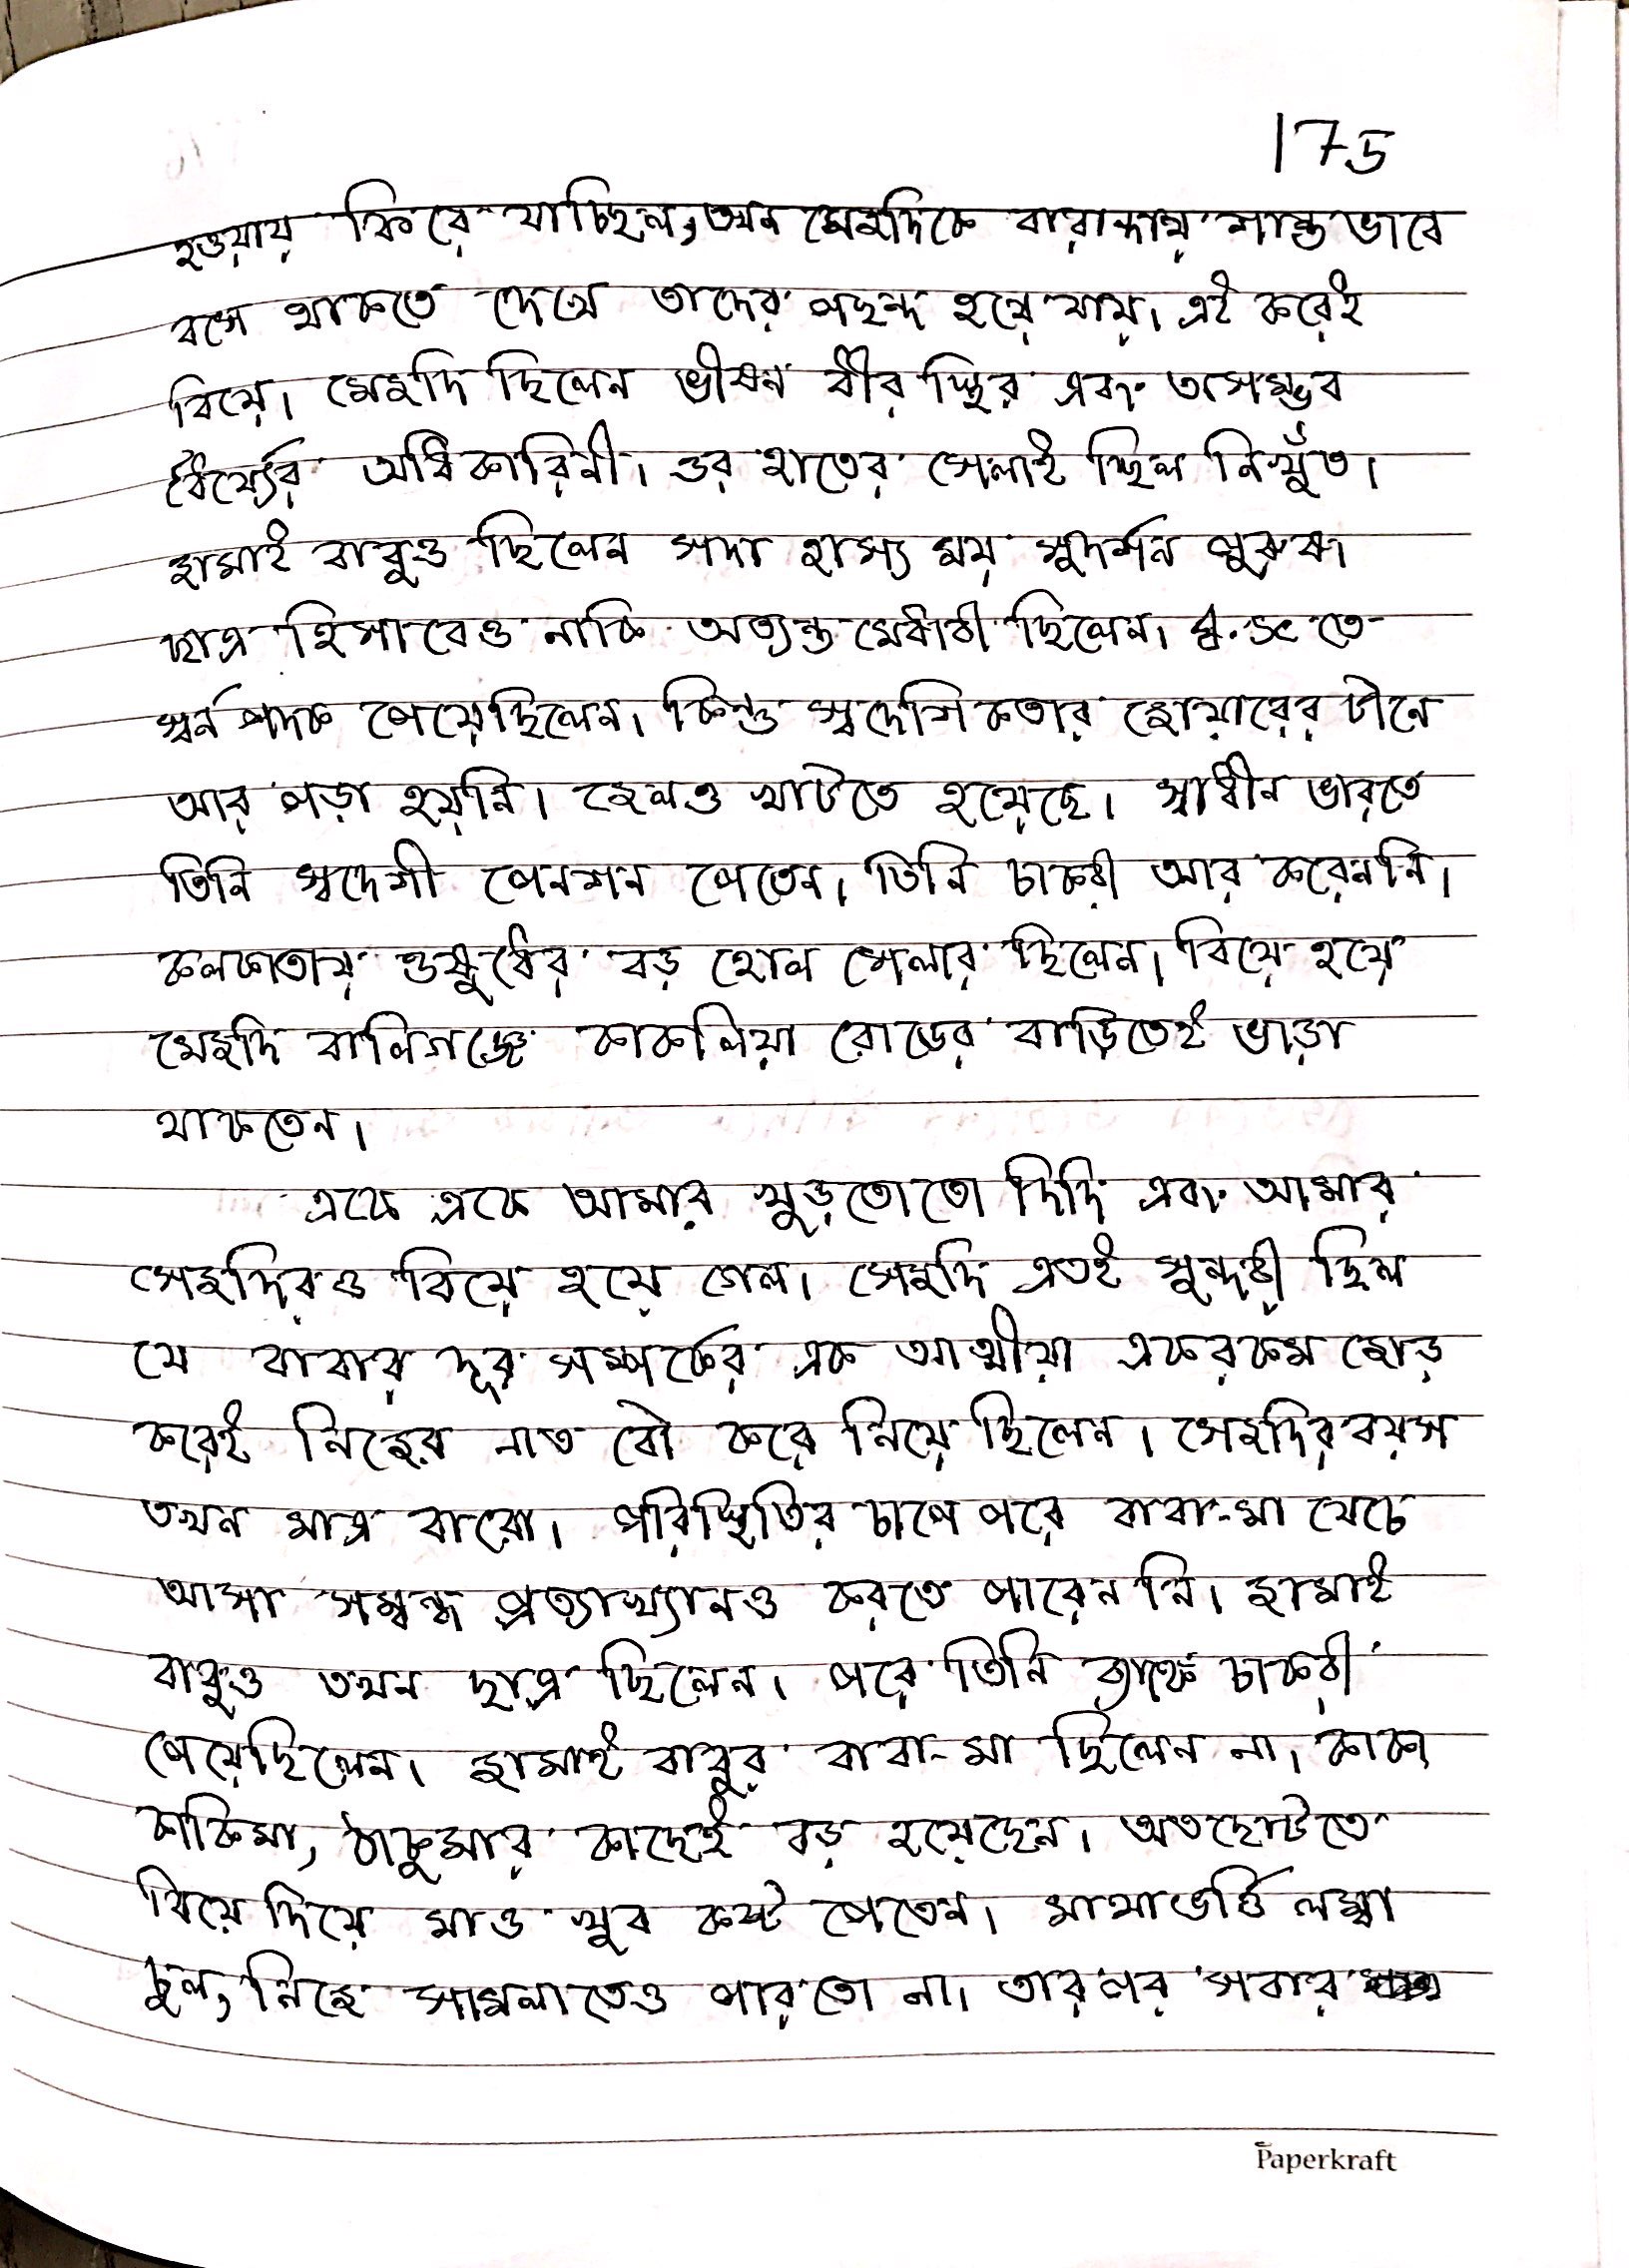 175
হওয়ায় ফিরে যাচ্ছিল, তখন মেজদিকে বারান্দায় শান্ত ভাবে
বসে থাকতে দেখে তাদের পছন্দ হয়ে যায়। এই করেই
বিয়ে। মেজদি ছিলেন ভীষন ধীর স্থির এবং অসম্ভব
ধৈর্য্যের অধিকারিনী। ওর হাতের সেলাই ছিল নিখুঁত।
জামাই বাবুও ছিলেন সদা হাস্য ময় সুদর্শন পুরুষ।
ছাত্র হিসাবেও নাকি অত্যন্ত মেধাবী ছিলেন। .sc তে
স্বর্ন পদক পেয়েছিলেন। কিন্তু স্বদেশিকতার জোয়ারের টানে
আর পড়া হয়নি। জেলও খাটতে হয়েছে। স্বাধীন ভারতে
তিনি স্বদেশী পেনশন পেতেন। তিনি চাকরী আর করেননি।
কলকাতায় ওষুধের বড় হোল সেলার ছিলেন। বিয়ে হয়ে
মেজদি বালিগঞ্জে কাকলিয়া রোডের বাড়িতেই ভাড়া
থাকতেন।
একে একে আমার খুড়তোতো দিদি এবং আমার
সেজদিরও বিয়ে হয়ে গেল। সেজদি এতই সুন্দরী ছিল
যে বাবার দূর সম্পর্কের এক আত্মীয়া একরকম জোড়
করেই নিজের নাত বৌ করে নিয়ে ছিলেন। সেজদির বয়স
তখন মাত্র বারো। পরিস্থিতির চাপে পরে বাবা-মা যেচে
আসা সম্বন্ধ প্রত্যাখ্যানও করতে পারেন নি। জামাই
বাবুও তখন ছাত্র ছিলেন। পরে তিনি ব্যাঙ্কে চাকরী
পেয়েছিলেন। জামাই বাবুর বাবা-মা ছিলেন না। কাকা
কাকিমা, ঠাকুমার কাছেই বড় হয়েছেন। অতছোটতে
বিয়ে দিয়ে মাও খুব কষ্ট পেতেন। মাথাভর্ত্তি লম্বা
চুল, নিজে সামলাতেও পারতো না। তারপর সবার
Paperkraft